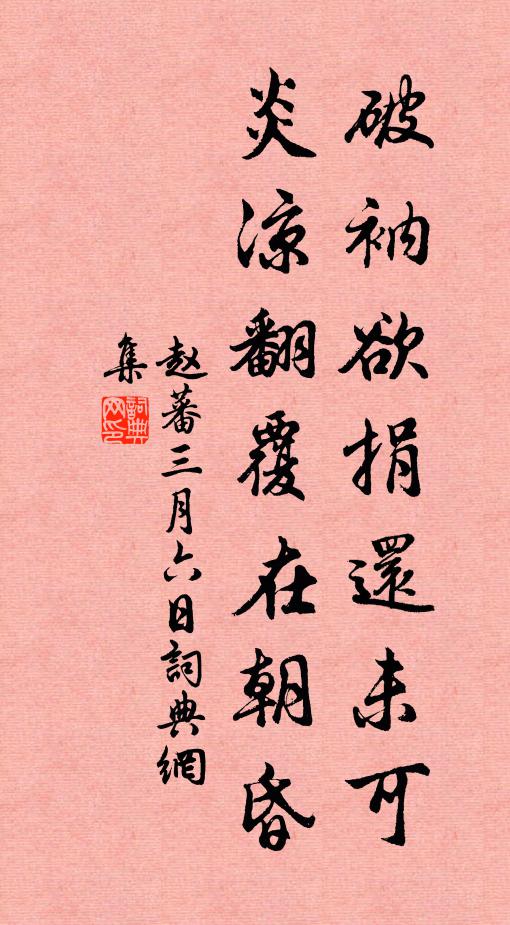 破衲欲捐還未可
炎凉翻覆在朝昏
赵蕃三月六日詞典網
集
詞典
网印